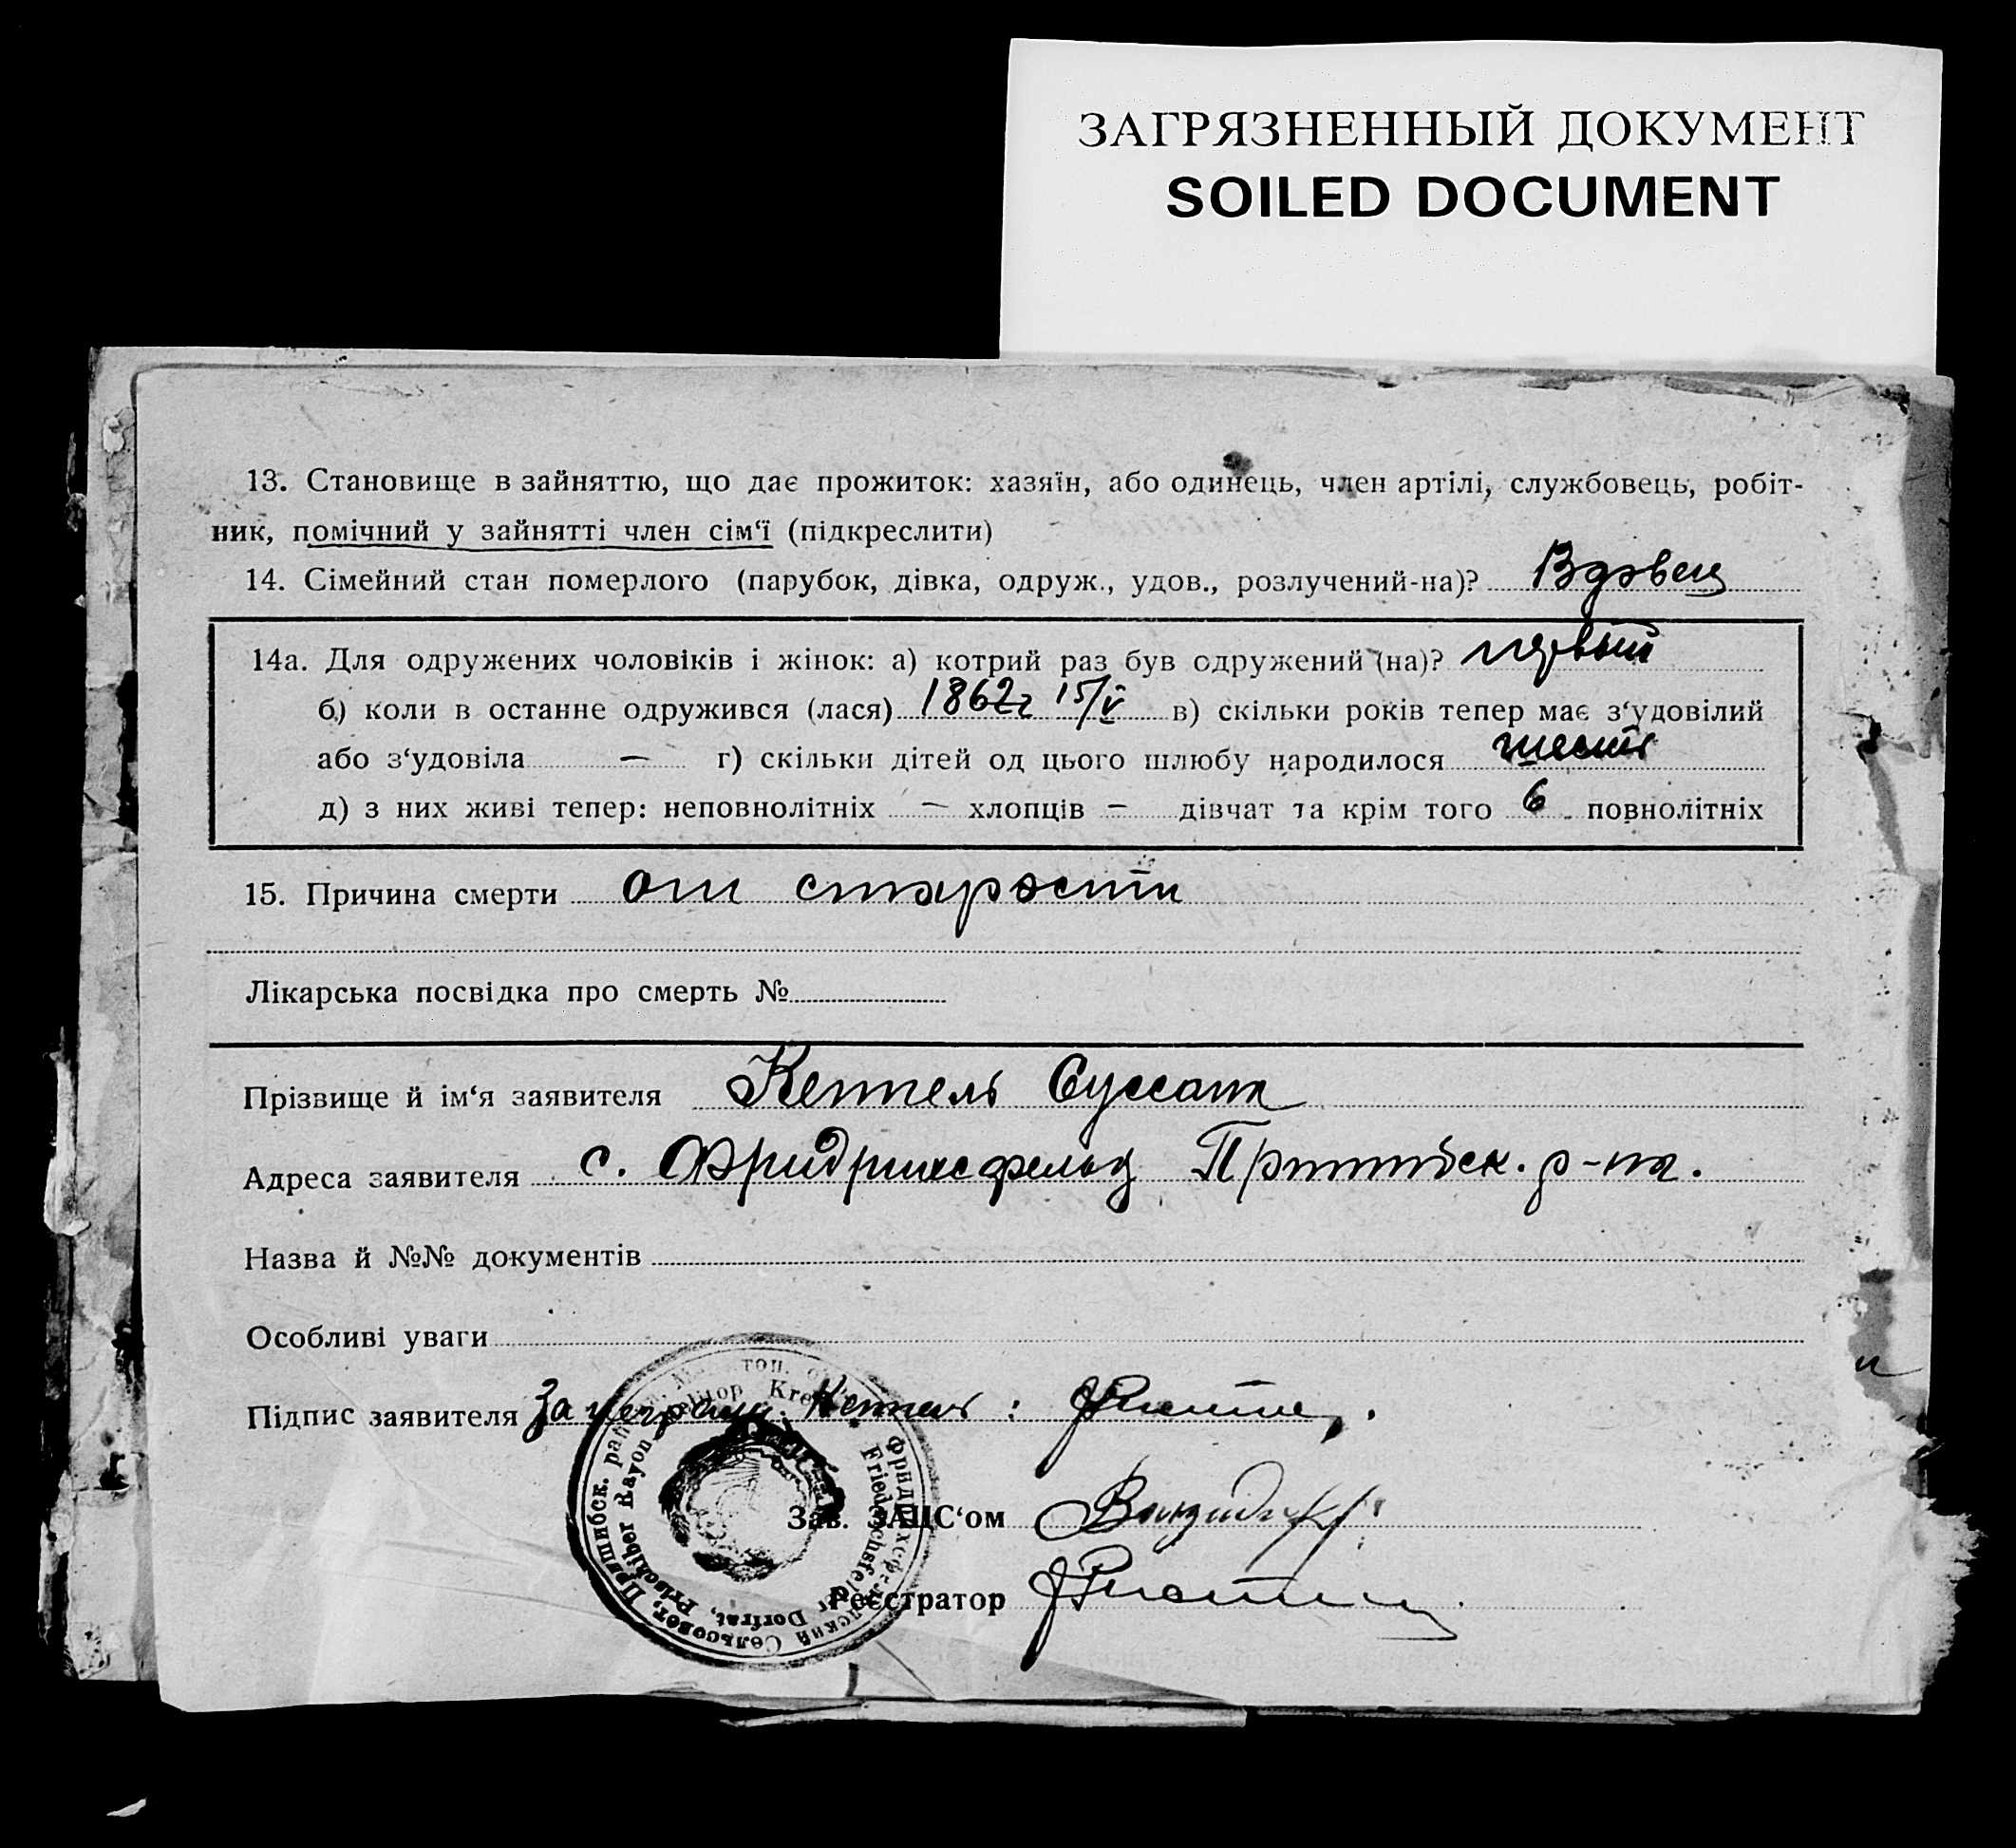 ЗАГРЯЗНЕННЫЙ ДОКУМЕНТ
SOILED DOCUMENT
13. Становище в зайняттю, що дає прожиток: хазяїн, або одинець, член артілі, службовець, робіт-
ник, помічний у зайнятті член сім‘ї (підкреслити)
14. Сімейний стан померлого (парубок, дівка, одруж., удов., розлучений-на)? Вдовец
14а. Для одружених чоловіків і жінок: а) котрий раз був одружений (на)? первый
б) коли в останне одружився (лася) 1862г 15/V в) скільки років тепер має з‘удовілий
або з‘удовіла — г) скільки дітей од цього шлюбу народилося шесть
д) з них живі тепер: неповнолітніх — хлопців — дівчат та крім того 6 повнолітніх
15. Причина смерти от старости
Лікарська посвідка про смерть №
Прізвище й ім‘я заявителя Кеттель Суссана
Адреса заявителя с. Фридрихсфельд Пришибск. р-на.
Назва й №№ документів
Особливі уваги
Підпис заявителя За неграм. Кеттель:
Зав. ЗАГС‘ом
Реєстратор
Фридрихсфельдский Сельсовет, Пришибск. район
Friedrichsfelder Dorfrat, Prischiber Rayon